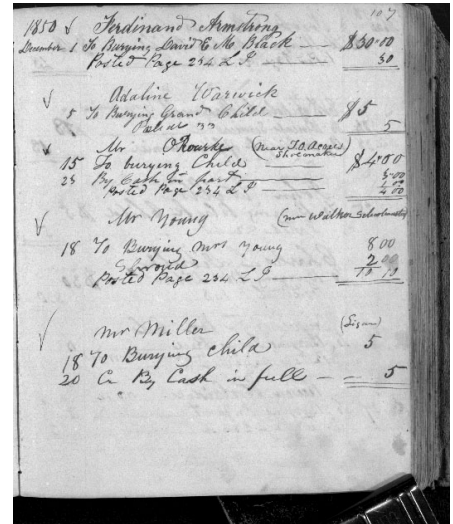 107
1850 √ Ferdinand Armstrong
December 1 To Burying David C Mc Black — $30.00
Posted Page 234 L G 30
√ Adaline Warwick
5 To Burying Grand Child — $5
5
√ Mr O'Rourke (near
Shoemaker
15 To burying Child $4.00
23 By Cash in part 3.00
Posted Page 234 L G
√ Mr Young (nr Walker Schoolmaster)
18 To Burying Mrs Young 8 00
Shroud 2 00
Posted Page 234 L G 10
√ Mr Miller (Segar)
18 To Burying Child 5
20 Cr By Cash in full — 5